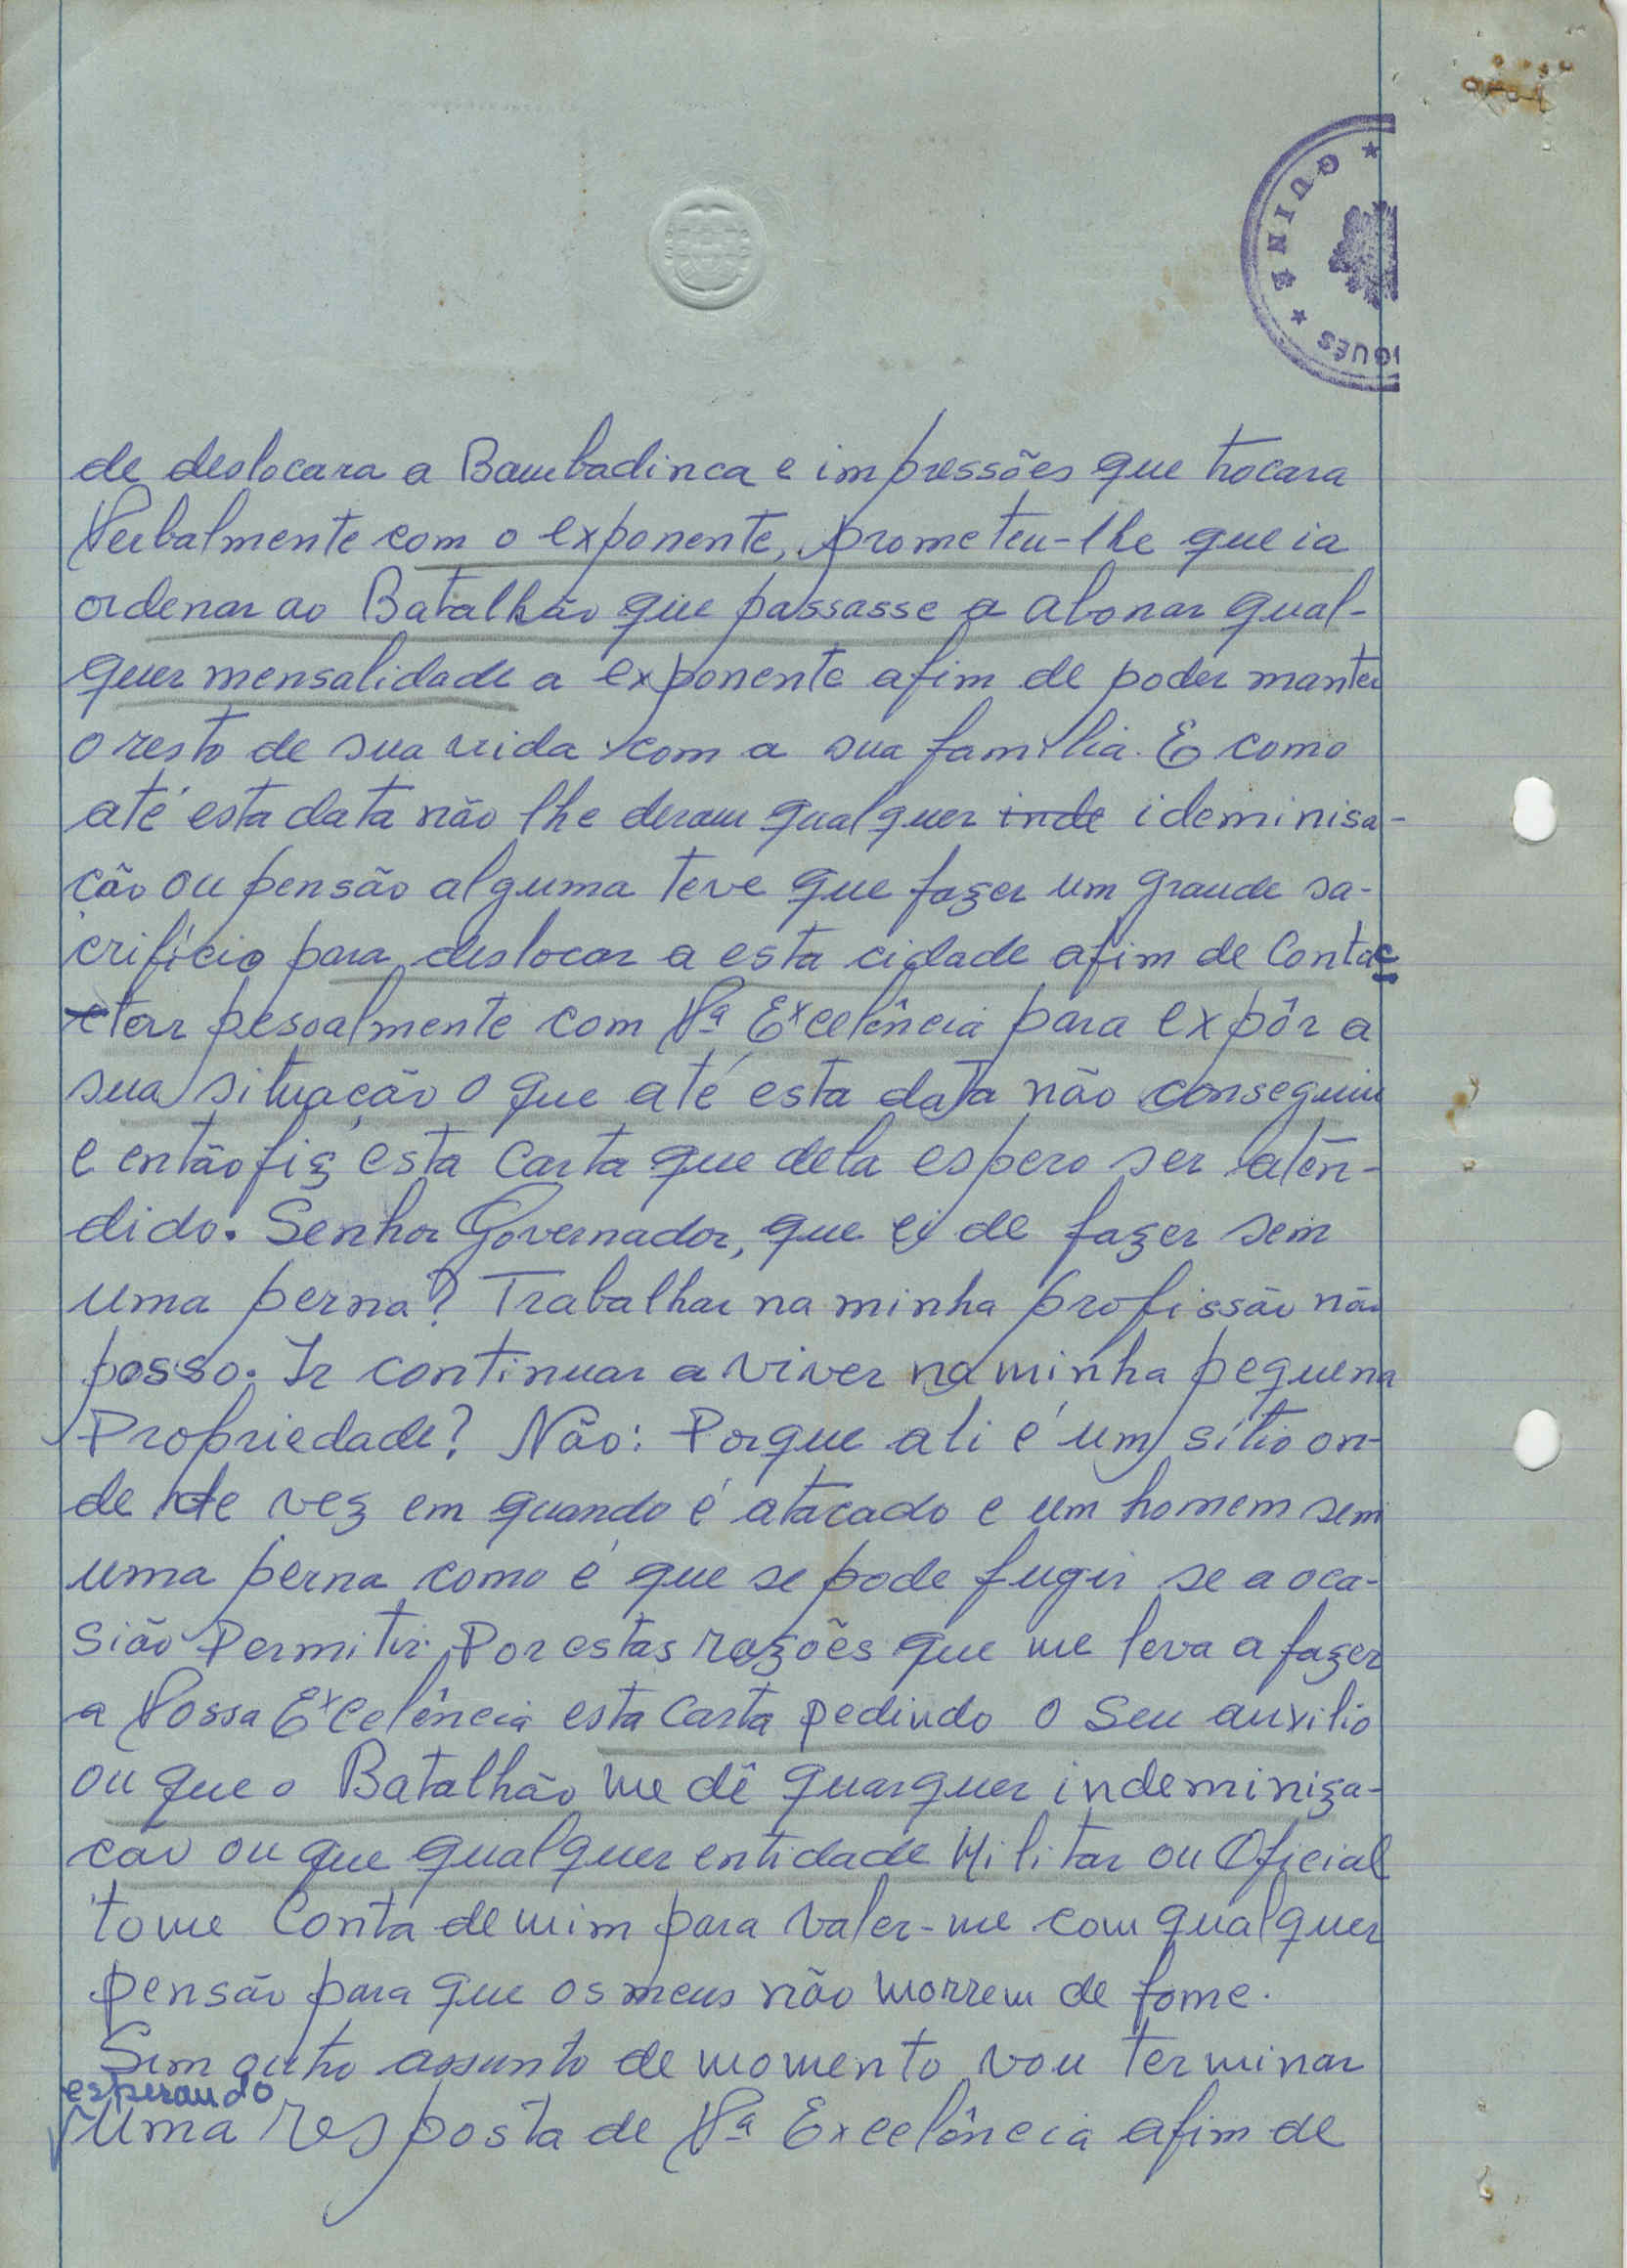 GUINÉ
de deslocara a Bambadinca e impressões que trocara
Verbalmente com o exponente, prometeu-lhe que ia
ordenar ao Batalhão que passasse a abonar qual-
quer mensalidade a exponente afim de poder manter
o resto de sua vida com a sua família. E como
até esta data não lhe deram qualquer inde ideminisa-
ção ou pensão alguma teve que fazer um grande sa-
crifício para deslocar a esta cidade afim de Contac
ctar pesoalmente com Vª Excelência para expôr a
sua situação o que até esta data não conseguiu
e então fiz esta Carta que dela espero ser aten-
dido. Senhor Governador, que ei de fazer sem
uma perna? Trabalhar na minha profissão não
posso. Ir continuar a viver na minha pequena
Propriedade? Não: Porque ali é um sítio on-
de de vez em quando é atacado e um homem sem
uma perna como é que se pode fugir se a oca-
sião Permitir. Por estas razões que me leva a fazer
a Vossa Excelência esta Carta pedindo o Seu auxilio
ou que o Batalhão me dê quarquer indeminiza-
cão ou que qualquer entidade Militar ou Oficial
tome Conta de mim para valer-me com qualquer
pensão para que os meus não morrem de fome.
Sem outro assunto de momento vou terminar
esperando
uma resposta de Vª Excelência afim de